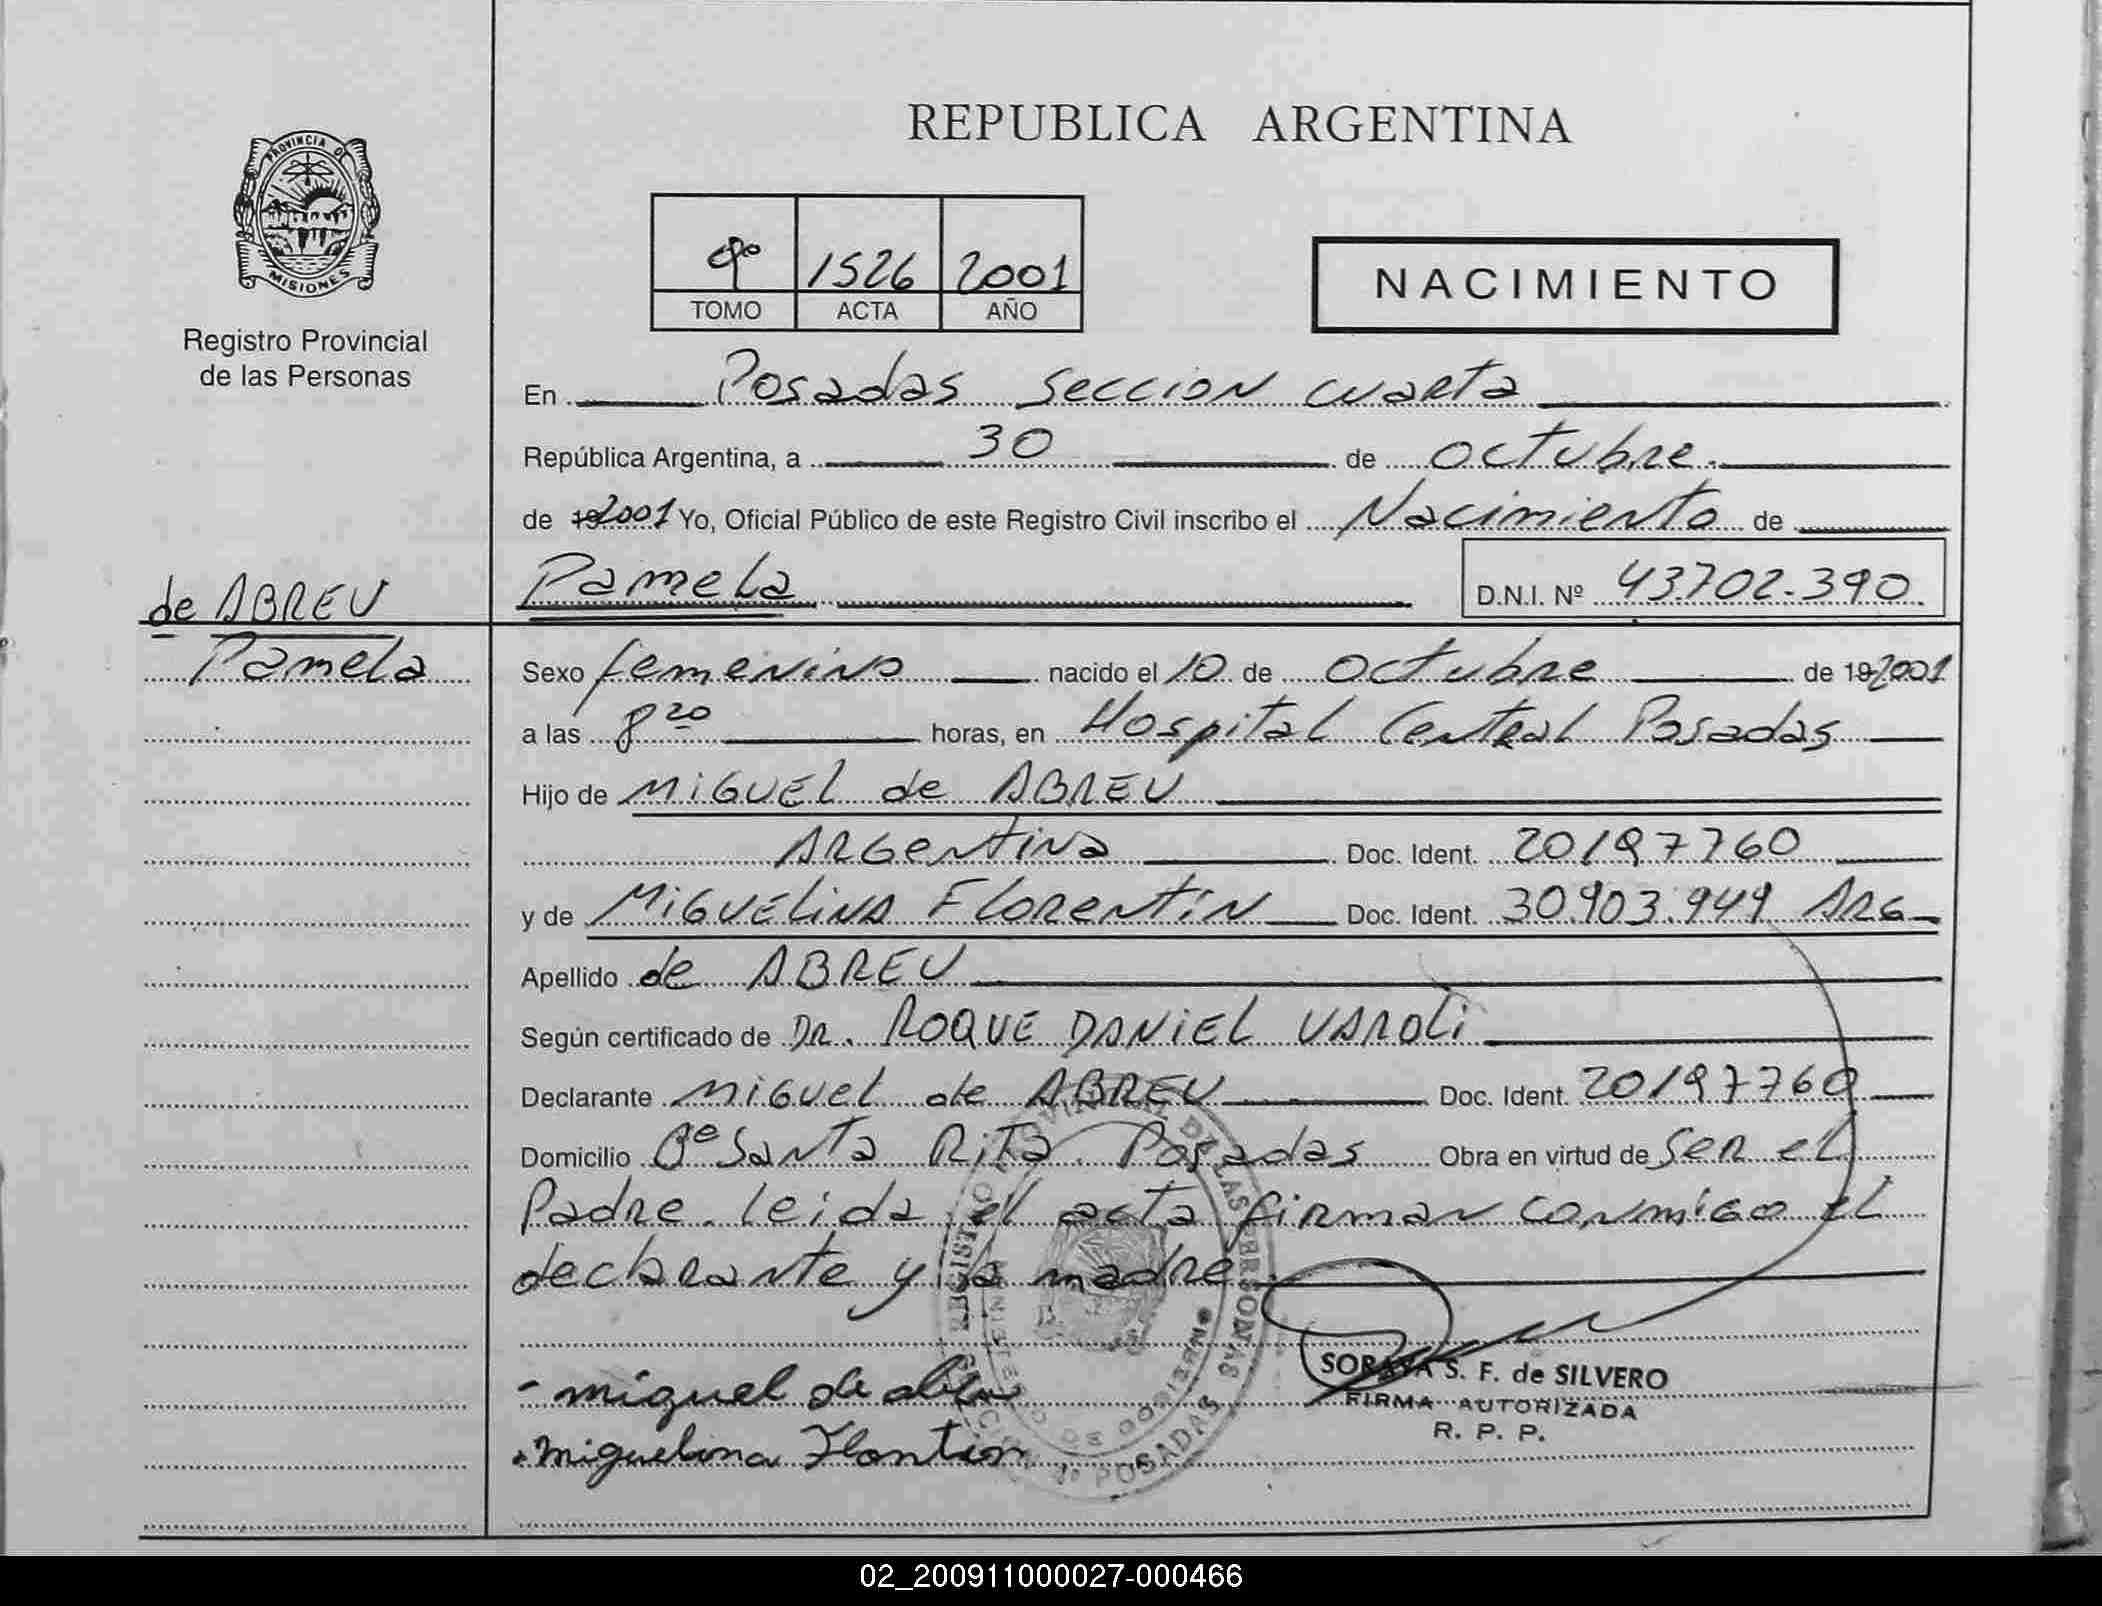 REPUBLICA ARGENTINA
PROVINCIA DE
MISIONES
Registro Provincial
de las Personas
4º 1526 2001
TOMO ACTA AÑO
NACIMIENTO
En Posadas Seccion cuarta
República Argentina, a 30 de octubre.
de 19 2001 Yo, Oficial Público de este Registro Civil inscribo el Nacimiento de
de ABREU
Pamela
Pamela D.N.I. Nº 43702.390
Sexo femenino nacido el 10 de Octubre de 19 2001
a las 8 20 horas, en Hospital Central Posadas
Hijo de MiGUEL de ABREU
ARGentino Doc. Ident. 20197760
y de MiGUELiNA FLorentin Doc. Ident. 30.903.949 ARG
Apellido de ABREU
Según certificado de DR. ROQUE DANiEL VAROLi
Declarante MiGuel de ABREU Doc. Ident. 20197760
Domicilio Bº Santa Rita Posadas Obra en virtud de Ser el
Padre. Leida el acta firman conmigo el
declarante y la madre.
miguel de abreu
SORAYA S. F. de SILVERO
FIRMA AUTORIZADA
R. P. P.
miguelina
POSADAS
02_200911000027-000466